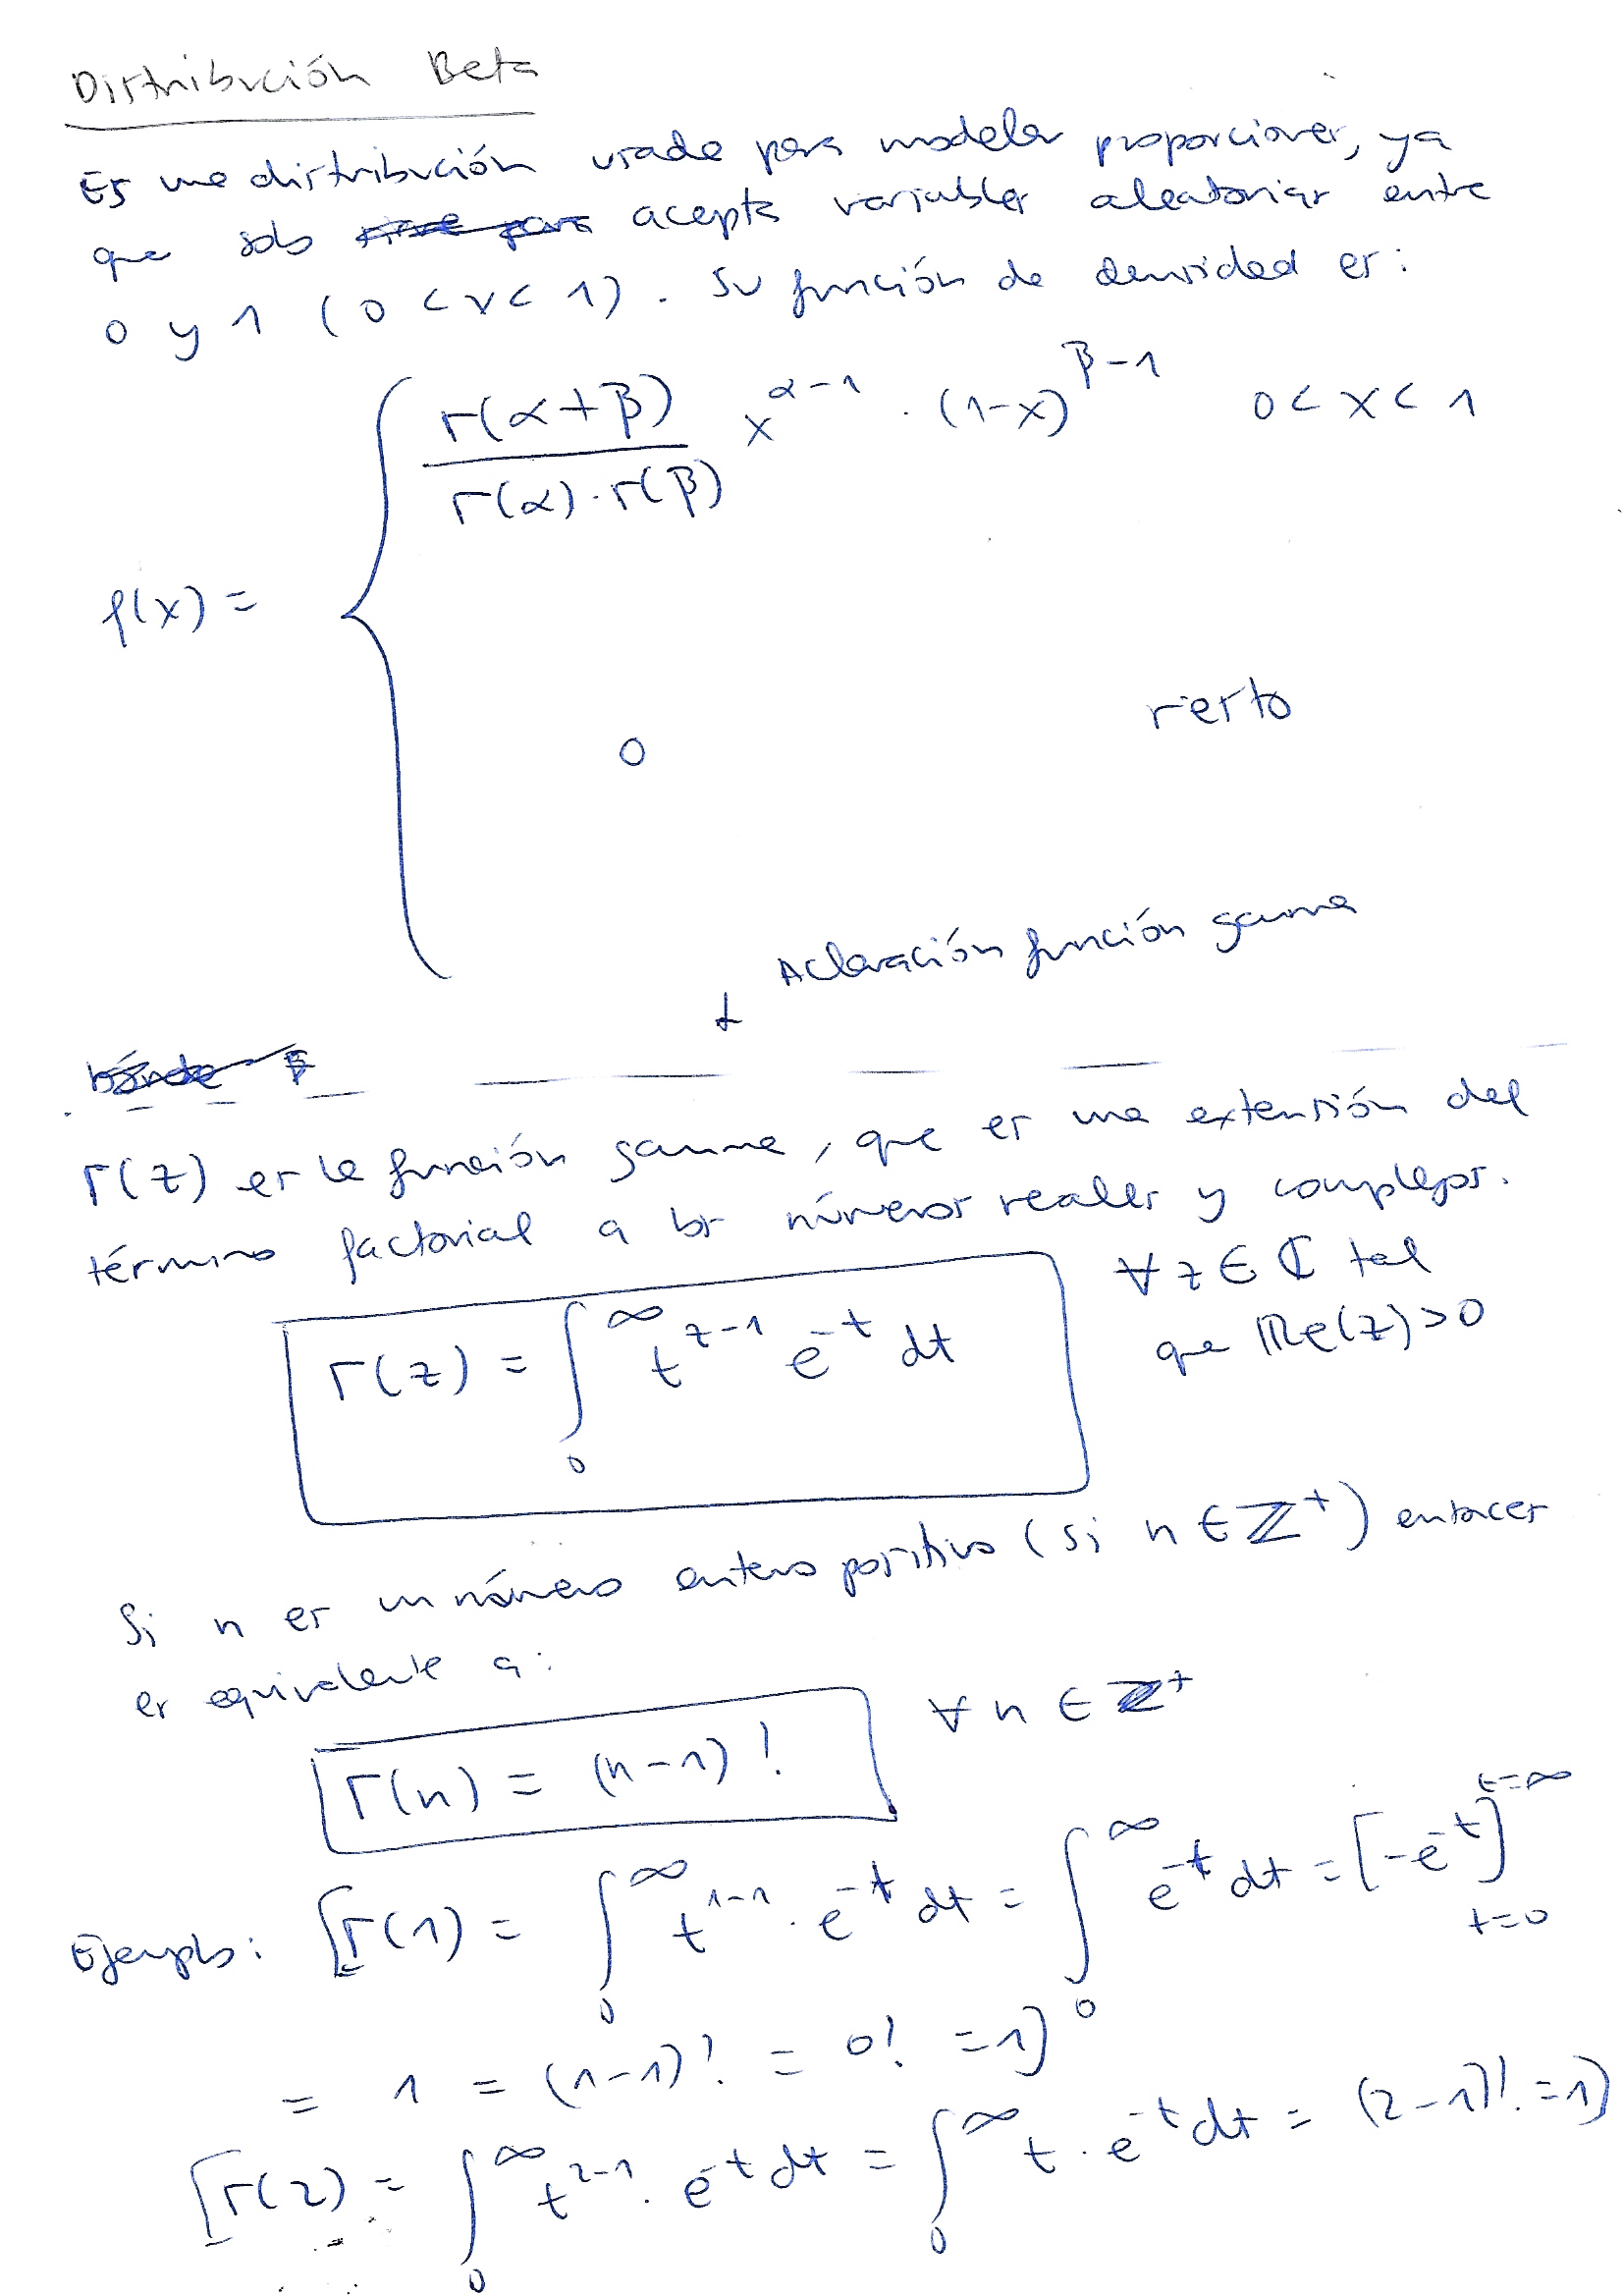 Distribución Beta
Es una distribución usada para modelar proporciones, ya
que solo ~~sirve para~~ acepta variables aleatorias entre
0 y 1 (0 < x < 1). Su función de densidad es:
f(x) = { Γ(α+β) / (Γ(α)·Γ(β)) x^(α-1) · (1-x)^(β-1)   0 < x < 1
0   resto
↓ Aclaración función gamma
Γ(z) es la función gamma, que es una extensión del
término factorial a los números reales y complejos.
Γ(z) = ∫_0^∞ t^(z-1) e^(-t) dt   ∀ z ∈ ℂ tal
que Re(z)>0
Si n es un número entero positivo (si n ∈ ℤ⁺) entonces
es equivalente a:
Γ(n) = (n-1)!   ∀ n ∈ ℤ⁺
Ejemplo: [Γ(1) = ∫_0^∞ t^(1-1) · e^(-t) dt = ∫_0^∞ e^(-t) dt = [-e^(-t)]_(t=0)^(t=∞)
= 1 = (1-1)! = 0! = 1]
[Γ(2) = ∫_0^∞ t^(2-1) · e^(-t) dt = ∫_0^∞ t · e^(-t) dt = (2-1)! = 1]